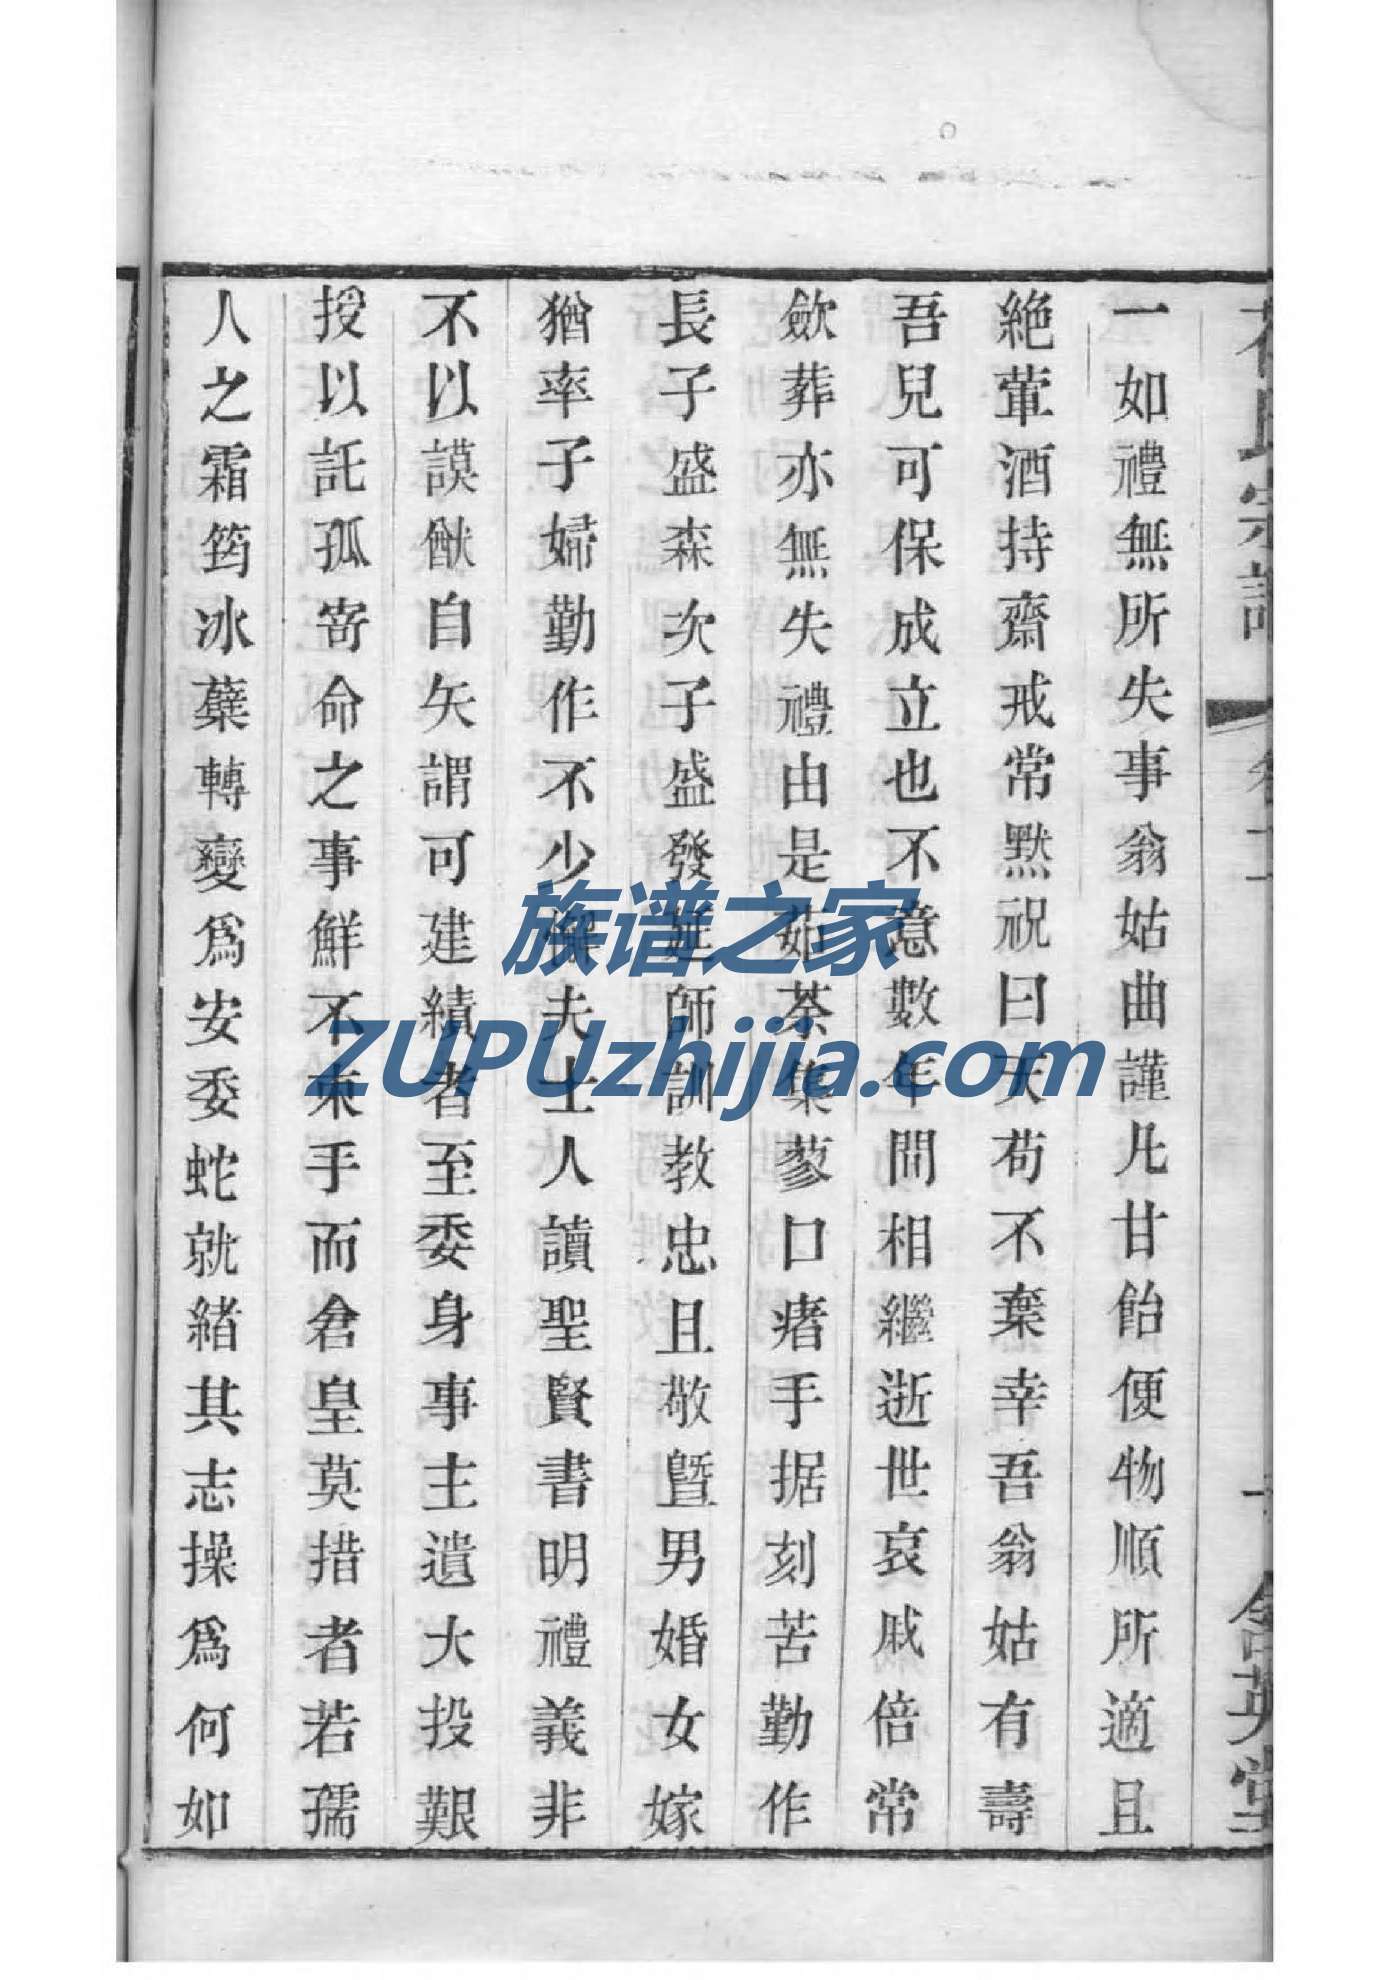 氏宗譜
含英堂
一如禮無所失事翁姑曲謹凡甘飴便物順所適且
絕葷酒持齋戒常默祝曰天苟不棄幸吾翁姑有壽
吾兒可保成立也不意數年間相繼逝世哀戚倍常
歛葬亦無失禮由是茹荼集蓼口瘏手据刻苦勤作
長子盛森次子盛發延師訓教忠且敬曁男婚女嫁
猶率子婦勤作不少懈夫士人讀聖賢書明禮義非
不以謨猷自矢謂可建績者至委身事主遺大投艱
授以託孤寄命之事鮮不束手而倉皇莫措者若孺
人之霜筠冰蘗轉變爲安委蛇就緒其志操爲何如
族谱之家
ZUPUzhijia.com